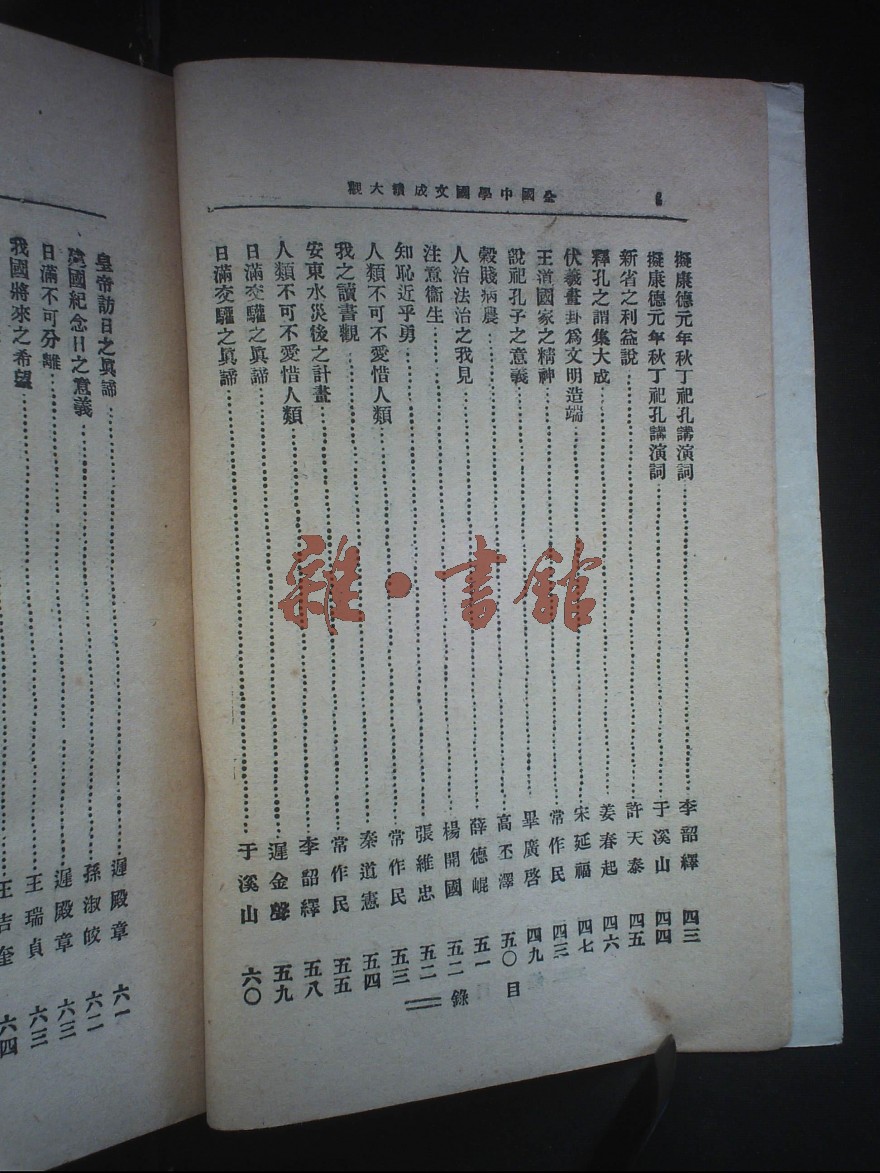 全國中學國文成績大觀
擬康德元年秋丁祀孔講演詞……李韶繹 四三
擬康德元年秋丁祀孔講演詞……于溪山 四四
新省之利益說……許天泰 四五
釋孔之謂集大成……姜春起 四六
伏羲畫卦爲文明造端……宋延福 四七
王道國家之精神……常作民 四三
說祀孔子之意義……畢廣啓 四九
榖賤病農……高丕澤 五〇
人治法治之我見……薛德崐 五一
注意衞生……楊開國 五二
知恥近乎勇……張維忠 五二
人類不可不愛惜人類……常作民 五三
我之讀書觀……秦道憲 五四
安東水災後之計畫……常作民 五五
人類不可不愛惜人類……李韶繹 五八
日滿交驩之眞諦……遲金聲 五九
日滿交驩之眞諦……于溪山 六〇
目錄 二
皇帝訪日之眞諦……遲殿章 六一
建國紀念日之意義……孫淑皎 六二
日滿不可分離……遲殿章 六三
我國將來之希望……王瑞貞 六三
王吉奎 六四
雜·書館